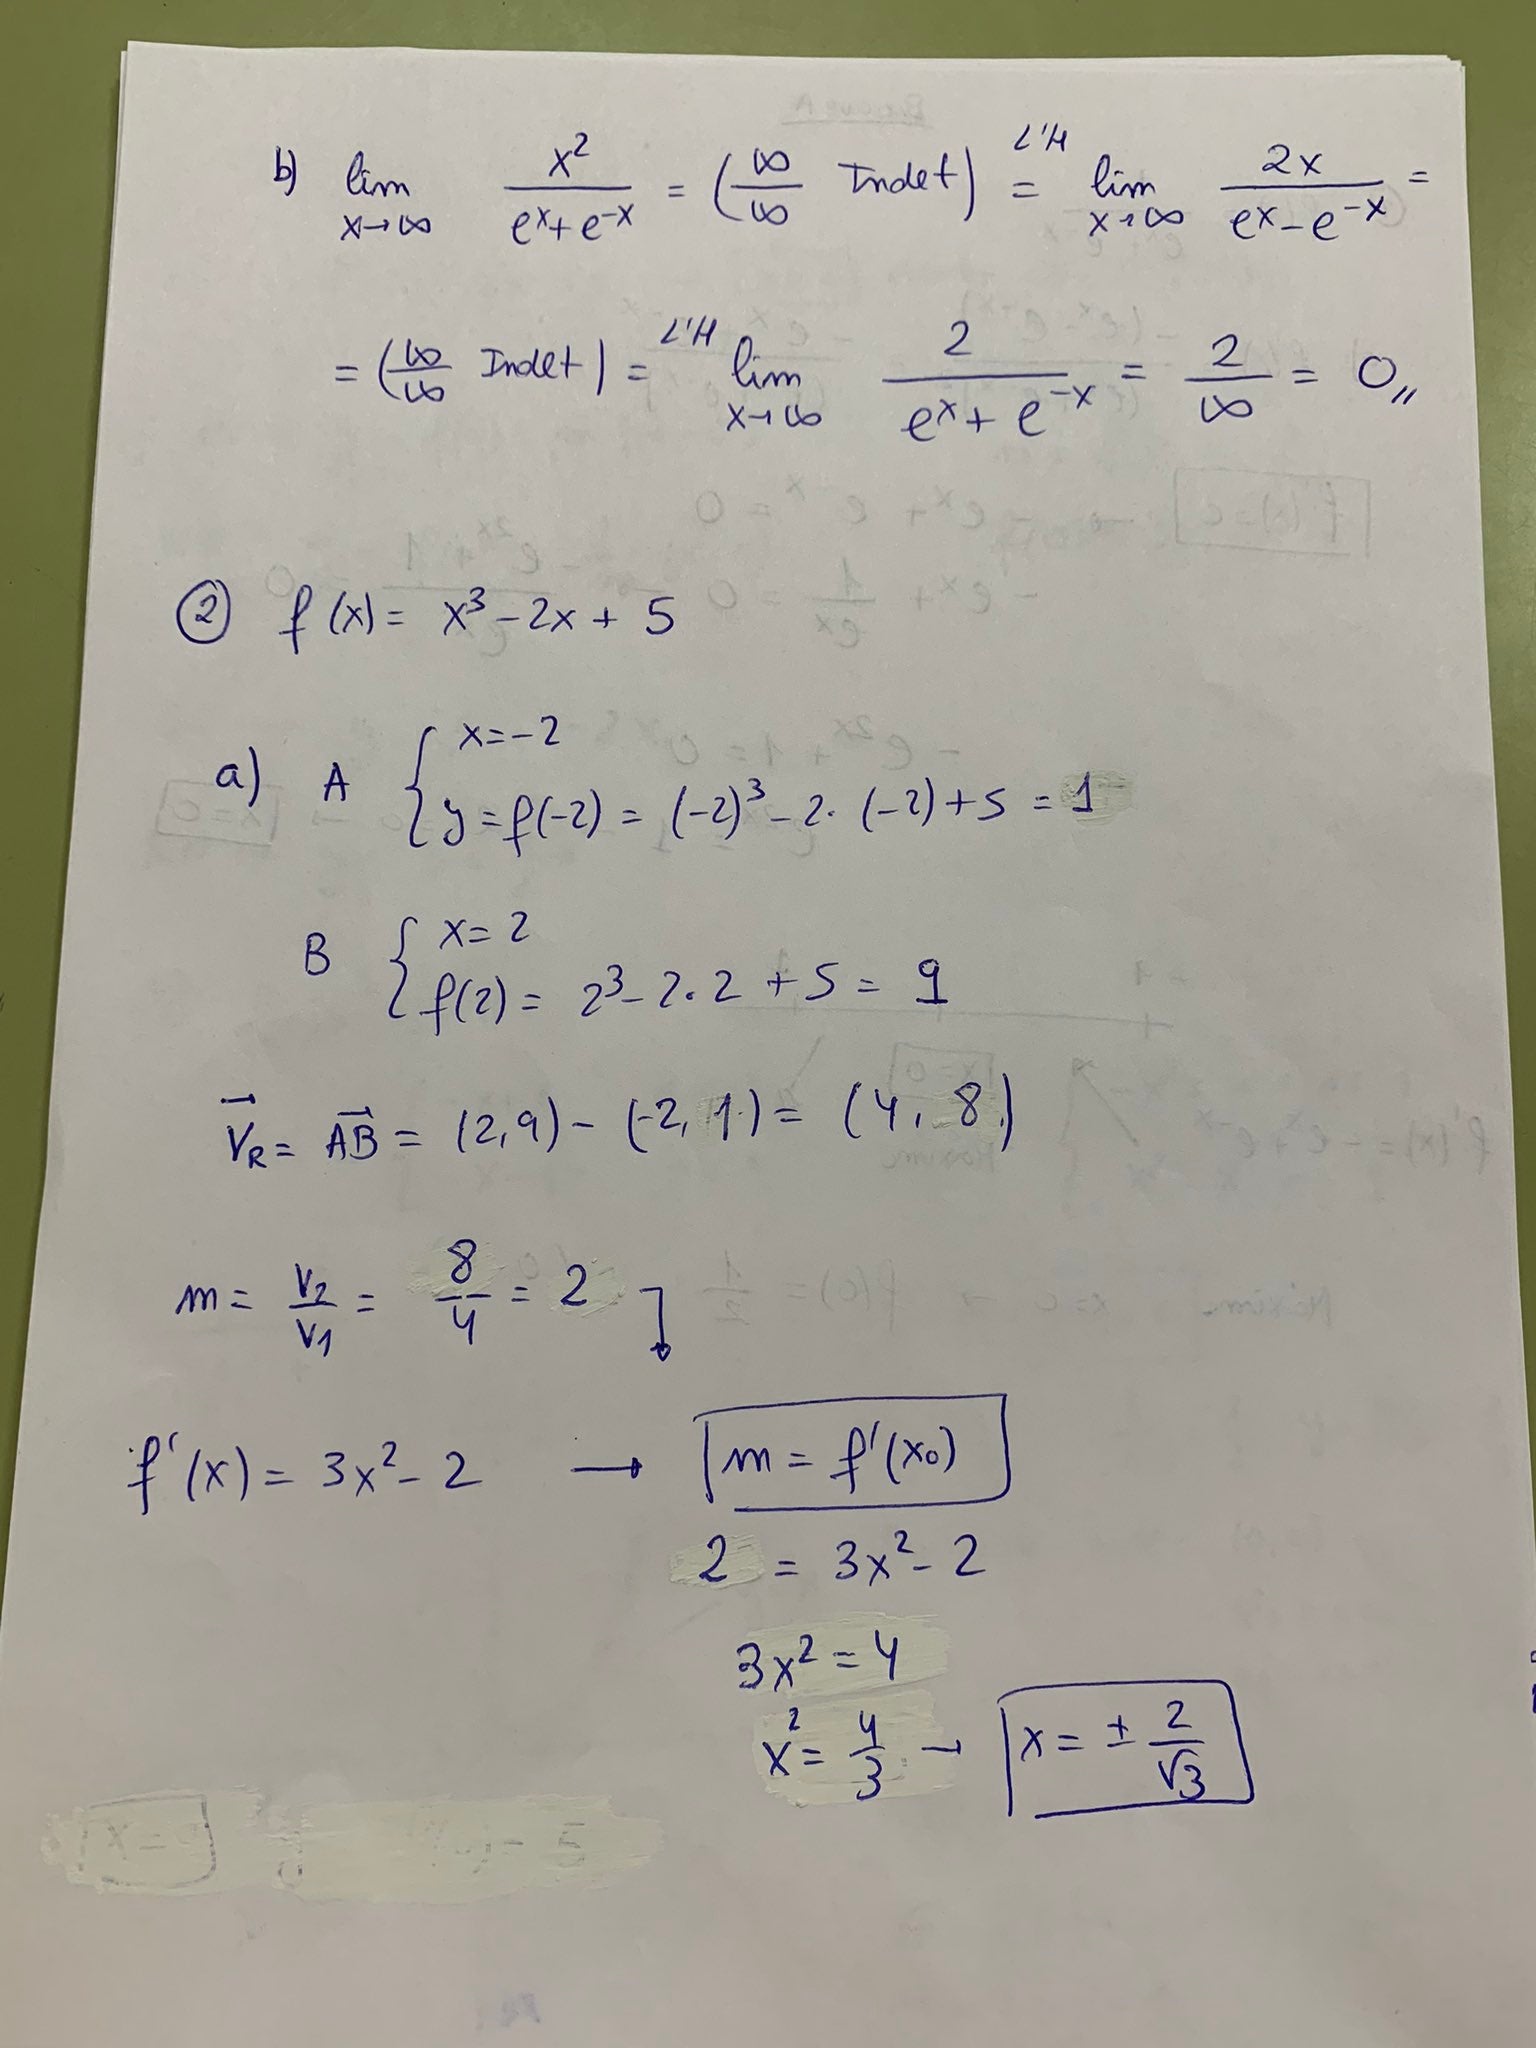 b) lim x→∞ x²/(eˣ+e⁻ˣ) = (∞/∞ Indet) =L'H lim x→∞ 2x/(eˣ-e⁻ˣ) =
= (∞/∞ Indet) =L'H lim x→∞ 2/(eˣ+e⁻ˣ) = 2/∞ = 0,,
② f(x) = x³-2x+5
a) A { x=-2
y=f(-2) = (-2)³-2·(-2)+5 = 1
B { x=2
f(2) = 2³-2·2+5 = 9
V⃗R = AB⃗ = (2,9)-(-2,1) = (4,8)
m = V2/V1 = 8/4 = 2 ↓
f'(x) = 3x²-2 → m = f'(x₀)
2 = 3x²-2
3x² = 4
x² = 4/3 → x = ± 2/√3